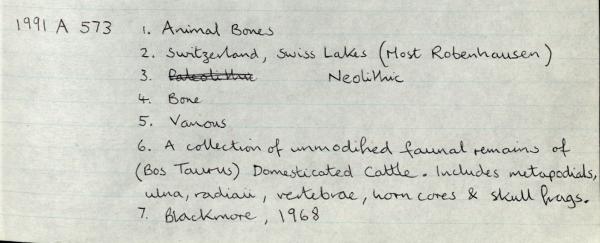 1991 A 573 1. Animal Bones
2. Switzerland, Swiss Lakes (Most Robenhausen)
3. Paleolithic Neolithic
4. Bone
5. Various
6. A collection of unmodified faunal remains of
(Bos Taurus) Domesticated Cattle. Includes metapodials,
ulna, radiaii, vertebrae, horn cores & skull frags.
7. Blackmore, 1968